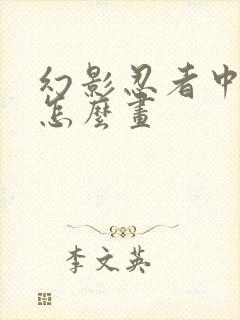 幻影忍者中
怎麼畫
李文英